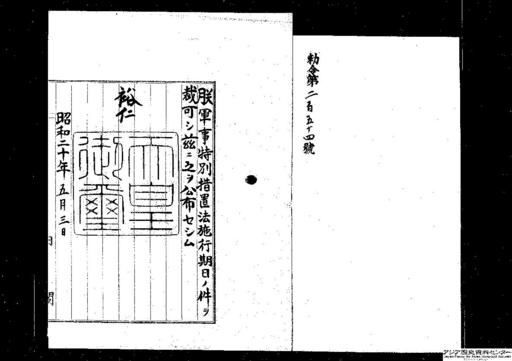 勅令第二百五十四號
朕軍事特別措置法施行期日ノ件ヲ
裁可シ茲ニ之ヲ公布セシム
裕仁
天皇
御璽
昭和二十年五月三日
アジア歴史資料センター